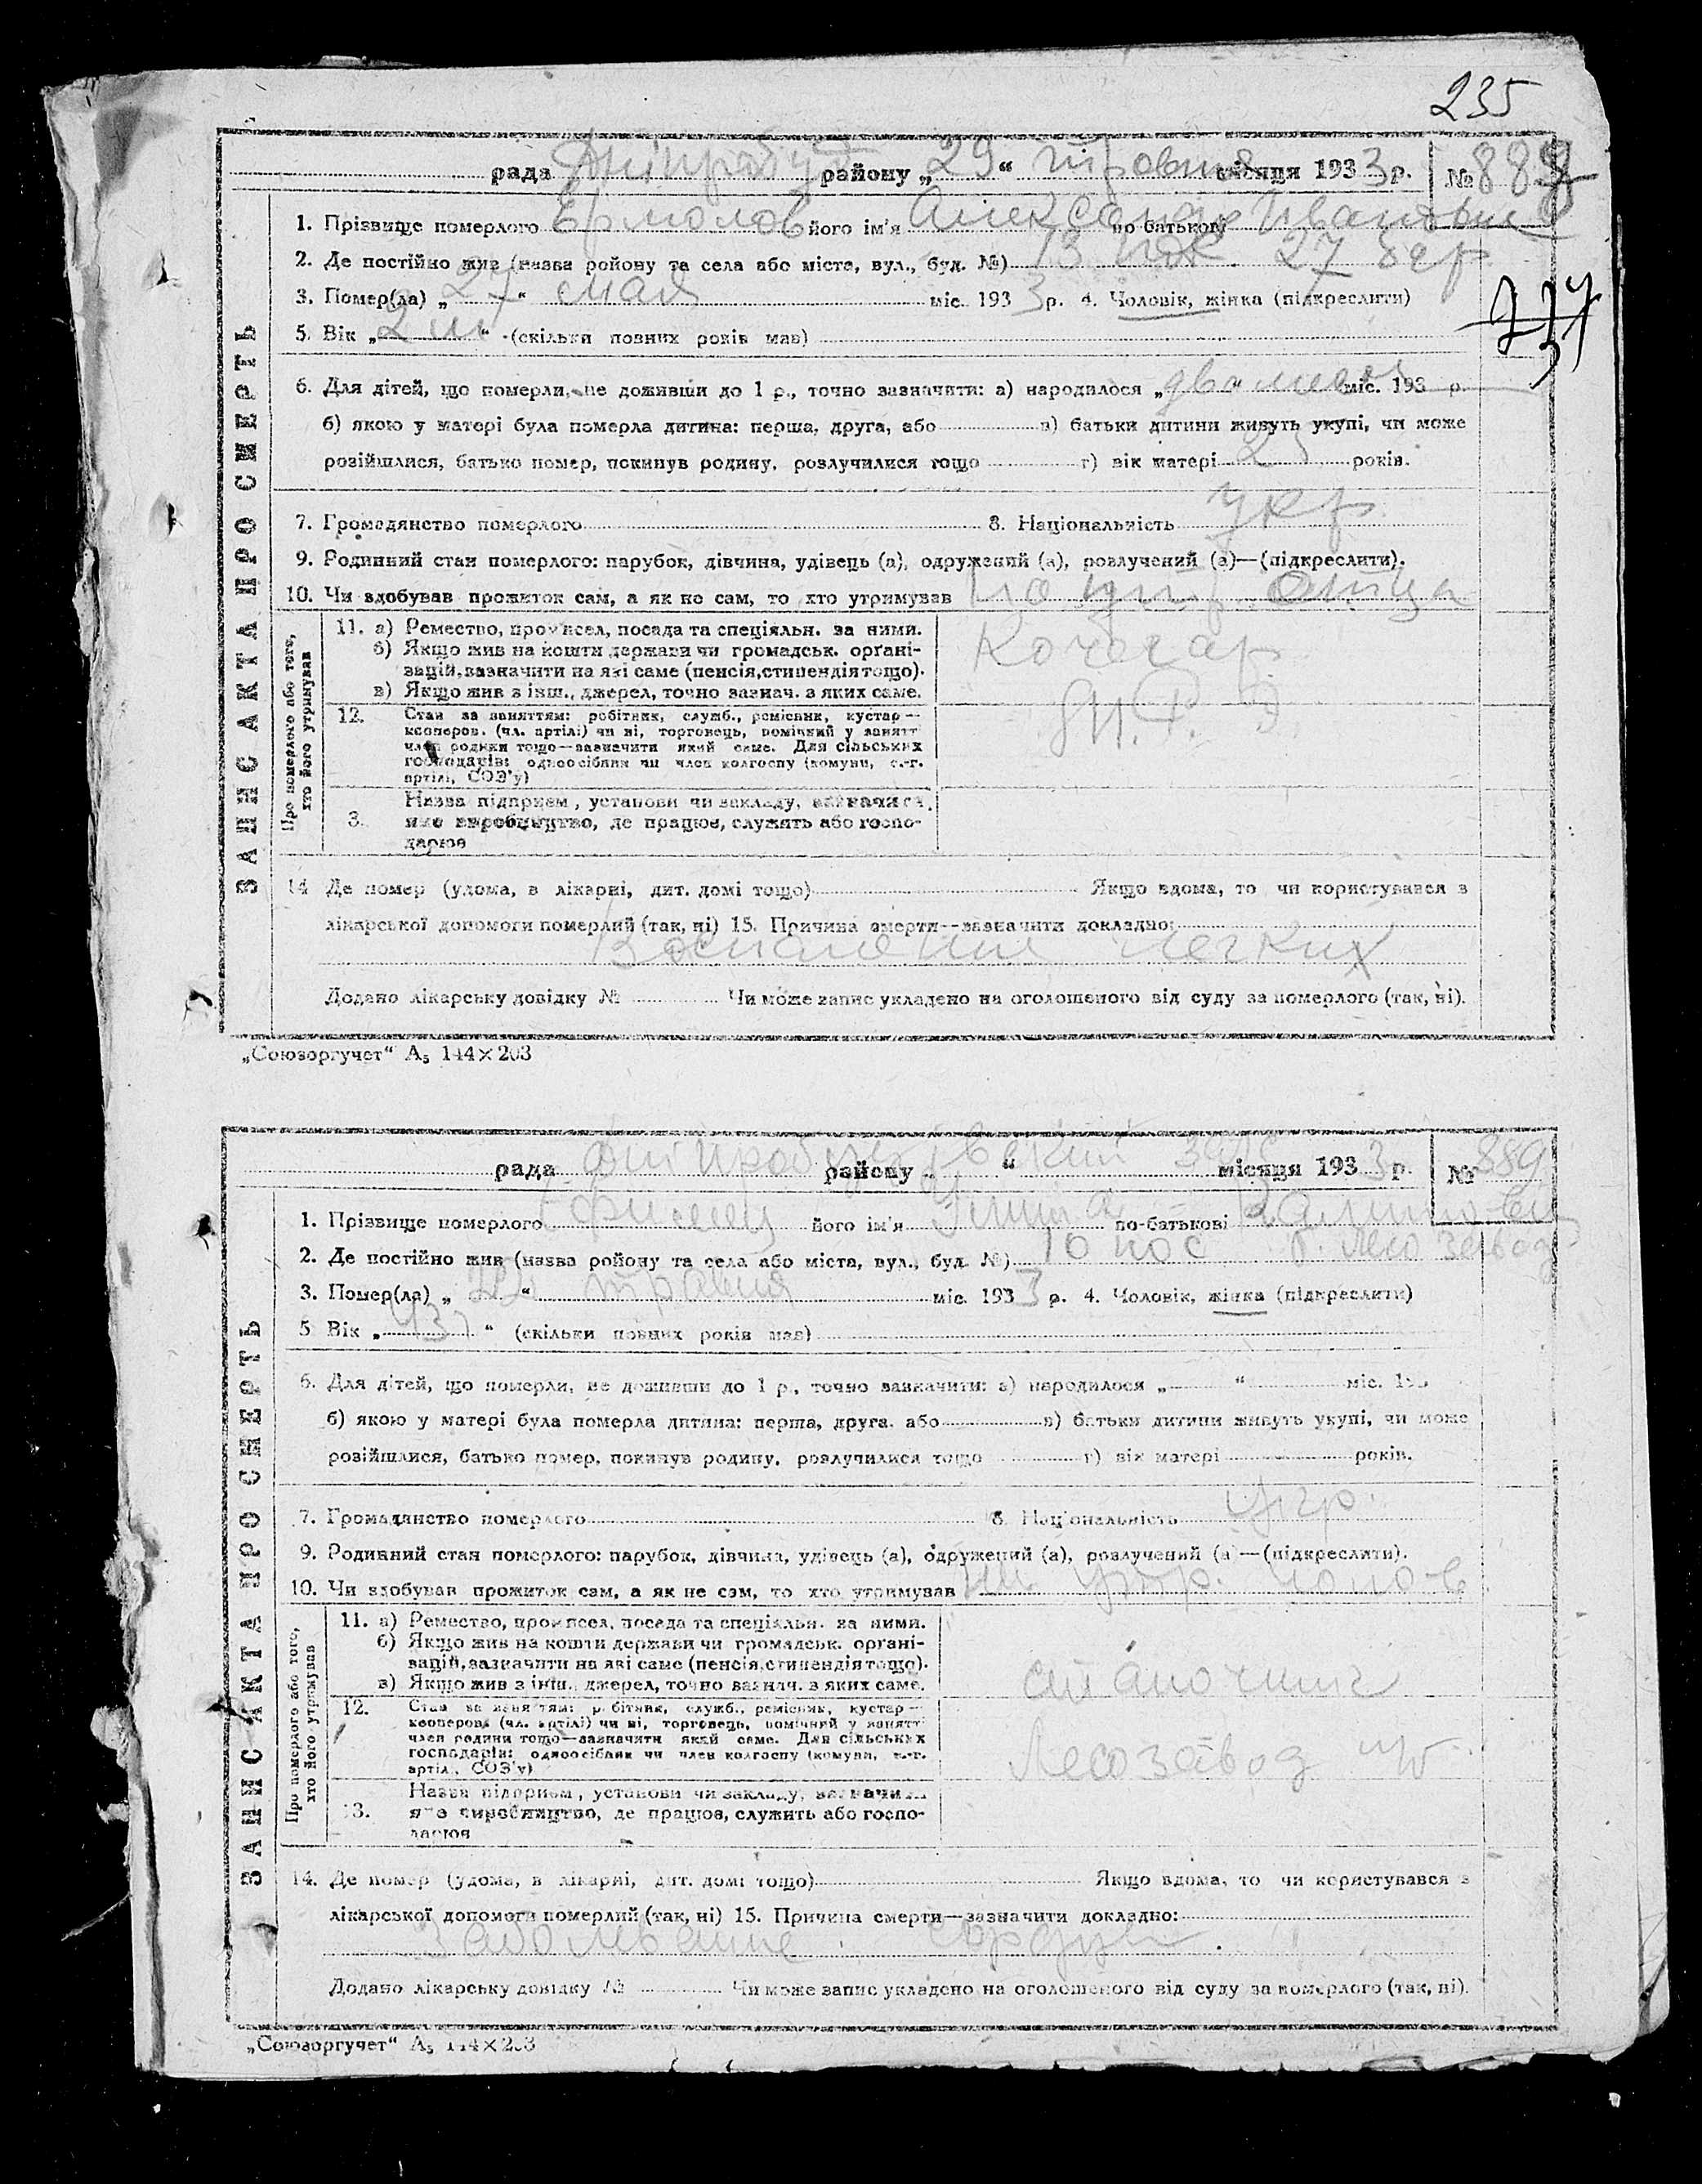 235
рада Дніпробуд району „ 29 “ травня місяця 1933 р. № 888
1. Прізвище померлого Ермолов його ім'я Александр по батькові Иванович
2. Де постійно жив (назва ройову та села або міста, вул., буд. №) 13 27 бар
3. Помер(ла) „ 27 “ мая міс. 193 3 р. 4. Чоловік, жінка (підкреслити)
5. Вік „ 2 м “ (скільки повних років мав)
6. Для дітей, що померли, не доживши до 1 р., точно зазначити: а) народилося „ два мес “ міс. 193 р.
б) якою у матері була померла дитина: перша, друга, або в) батьки дитини живуть укупі, чи може
розійшлися, батько помер, покинув родину, розлучилися тощо г) вік матері 25 років.
7. Громадянство померлого 8. Національність укр
9. Родинний стан померлого: парубок, дівчина, удівець (а), одружений (а), розлучений (а)—(підкреслити).
10. Чи здобував прожиток сам, а як не сам, то хто утримував отца
ЗАПИС АКТА ПРО СМЕРТЬ
Про померлого або того, хто його утримував
11. а) Ремество, промисел, посада та спеціяльн. за ними.
б) Якщо жив на кошти держави чи громадськ. органі-
зацій, зазначити на які саме (пенсія, стипендія тощо).
в) Якщо жив з інш., джерел, точно зазнач. з яких саме.
Кочегар
12. Стан за заняттям: робітник, служб., ремісник, кустар—
кооперов. (чл. артілі) чи ні, торговець, помічний у занятт
член родини тощо—зазначити який саме. Для сільських
господарів: одноосібник чи член колгоспу (комуни, с.-г.
артілі, СОЗ'у)
3. Назва підприєм, установи чи закладу, зазначися
яке виробництво, де працює, служить або госпо-
дарює
14 Де помер (удома, в лікарні, дит. домі тощо) Якщо вдома, то чи користувався з
лікарської допомоги померлий (так, ні) 15. Причина смерти—зазначити докладно:
Воспаление легких
Додано лікарську довідку № Чи може запис укладено на оголошеного від суду за померлого (так, ні).
„Союзоргучет“ А5 144×203
рада району „ “ місяця 193 3 р. № 889
1. Прізвище померлого його ім'я по-батькові
2. Де постійно жив (назва ройову та села або міста, вул., буд. №) 10 пос Лесозавод
3. Помер(ла) „ “ травня міс. 193 3 р. 4. Чоловік, жінка (підкреслити)
5 Вік „ 43 “ (скільки повних років мав)
6. Для дітей, що померли, не доживши до 1 р., точно зазначити: а) народилося „ “ міс. 193
б) якою у матері була померла дитина: перша, друга, або в) батьки дитини живуть укупі, чи може
розійшлися, батько помер, покинув родину, розлучилися тощо г) вік матері років.
7. Громадянство померлого 8. Національність укр.
9. Родинний стан померлого: парубок, дівчина, удівець (а), одружений (а), розлучений (а)—(підкреслити).
10. Чи здобував прожиток сам, а як не сам, то хто утримував
ЗАПИС АКТА ПРО СМЕРТЬ
Про померлого або того, хто його утримував
11. а) Ремество, промисел, посада та спеціяльн. за ними.
б) Якщо жив на кошти держави чи громадськ. органі-
зацій, зазначити на які саме (пенсія, стипендія тощо).
в) Якщо жив з інш., джерел, точно зазнач. з яких саме.
станочник
12. Стан за заняттям: робітник, служб., ремісник, кустар—
кооперов. (чл. артілі) чи ні, торговець, помічний у занятті
член родини тощо—зазначити який саме. Для сільських
господарів: одноосібник чи член колгоспу (комуни, с.-г.
артілі, СОЗ'у)
Лесозавод
13. Назва підприєм, установи чи закладу, зазначи
яке виробництво, де працює, служить або госпо-
дарює
14. Де помер (удома, в лікарні, дит. домі тощо) Якщо вдома, то чи користувався з
лікарської допомоги померлий (так, ні) 15. Причина смерти—зазначити докладно:
Заболевание сердца
Додано лікарську довідку № Чи може запис укладено на оголошеного від суду за померлого (так, ні).
„Союзоргучет“ А5 144×203